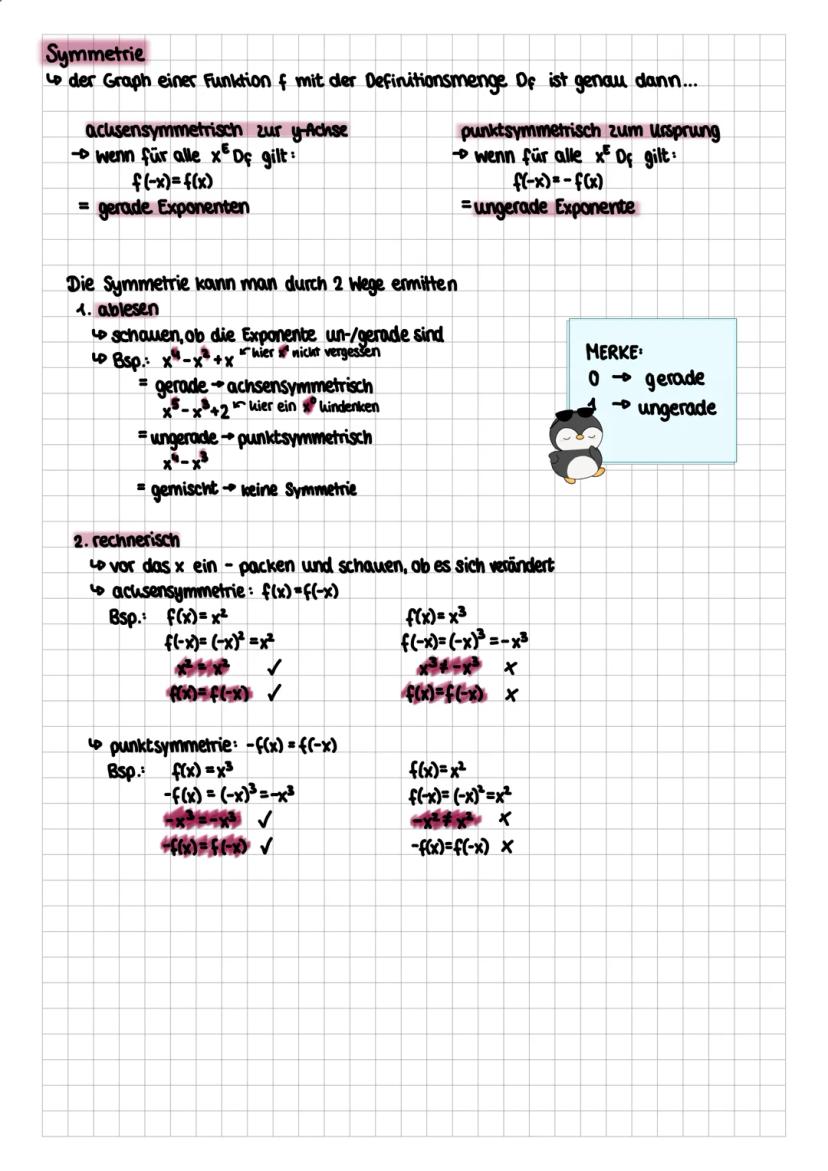 Symmetrie
↳ der Graph einer Funktion f mit der Definitionsmenge Df ist genau dann...
achsensymmetrisch zur y-Achse
→ wenn für alle x∈Df gilt:
f(-x)=f(x)
= gerade Exponenten
punktsymmetrisch zum Ursprung
→ wenn für alle x∈Df gilt:
f(-x)=-f(x)
= ungerade Exponente
Die Symmetrie kann man durch 2 Wege ermitten
1. ablesen
↳ schauen, ob die Exponente un-/gerade sind
↳ Bsp.: x⁴-x²+x ↖ hier x¹ nicht vergessen
= gerade → achsensymmetrisch
x⁵-x³+2 ↖ hier ein x⁰ hindenken
= ungerade → punktsymmetrisch
x⁴-x³
= gemischt → keine Symmetrie
MERKE:
0 → gerade
1 → ungerade
2. rechnerisch
↳ vor das x ein - packen und schauen, ob es sich verändert
↳ achsensymmetrie: f(x)=f(-x)
Bsp.: f(x)=x²
f(-x)=(-x)²=x²
x²=x² ✓
f(x)=f(-x) ✓
f(x)=x³
f(-x)=(-x)³=-x³
x³≠-x³ x
f(x)=f(-x) x
↳ punktsymmetrie: -f(x)=f(-x)
Bsp.: f(x)=x³
-f(x)=(-x)³=-x³
-x³=-x³ ✓
-f(x)=f(-x) ✓
f(x)=x²
f(-x)=(-x)²=x²
-x²≠x² x
-f(x)=f(-x) x